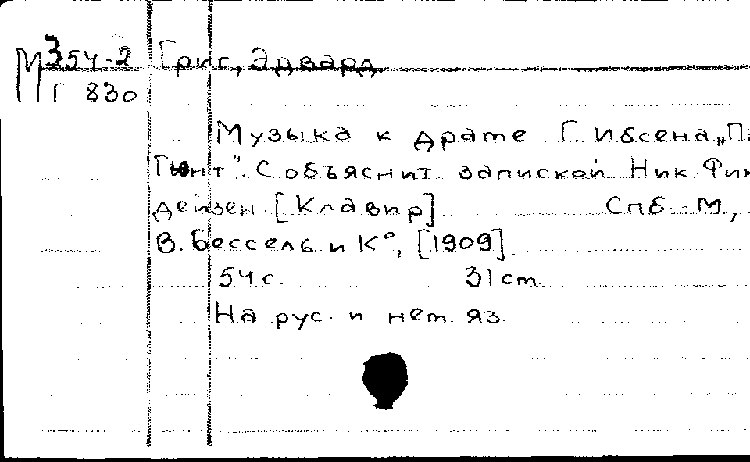 М 354-2 Григ, Эдвард
Г 830
Музыка к драме Г. Ибсена „П
Гюнт". С объяснит. запиской Ник. Фин
дейзен [Клавир] Спб.-М.,
В. Бессель и К°, [1909]
54 с. 31 cm
На рус. и нем. яз.